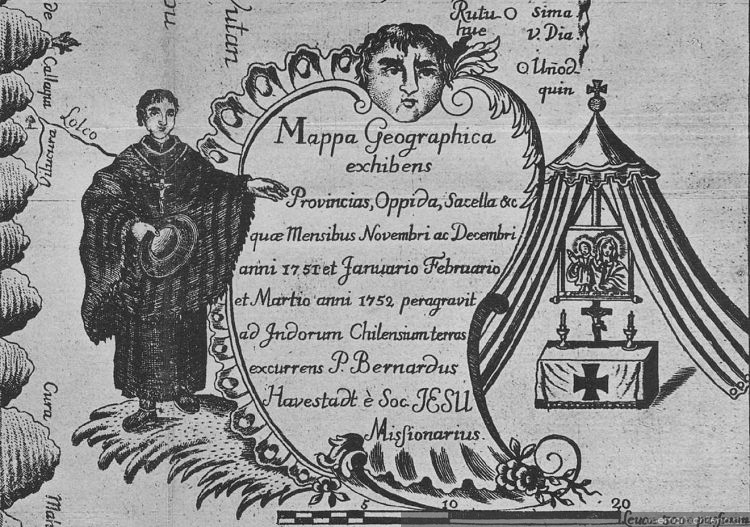 Rutu
hue
sima
v. Dia.
Uñod
quin
Vutan
Callaqui
Lolco
Mappa Geographica
exhibens
Provincias, Oppida, Sacella &c
quæ Mensibus Novembri ac Decembri
anni 1751 et Januario Februario
et Martio anni 1752 peragravit
ad Indorum Chilensium terras
excurrens P. Bernardus
Havestadt è Soc. JESU
Missionarius.
Cura
5
10
20